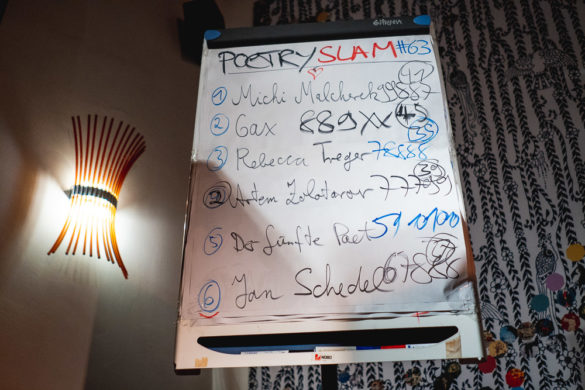 POETRY SLAM #63
① Michi Malcherek 99887 41
② Gax 889XX 45
③ Rebecca Treger 78888 39
② Artem Zolotarov 777
⑤ Der fünfte Poet 5910100
⑥ Jan Schedel
NOBO